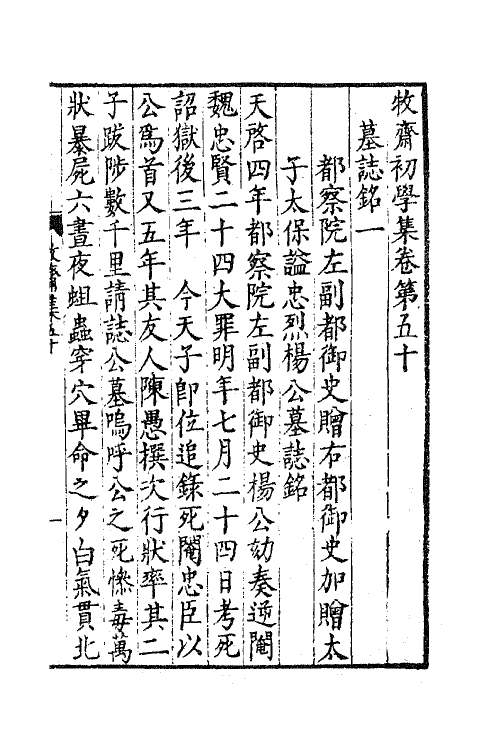 牧齋初學集卷第五十
墓誌銘一
都察院左副都御史贈右都御史加贈太
子太保謚忠烈楊公墓誌銘
天啓四年都察院左副都御史楊公劾奏逆閹
魏忠賢二十四大罪明年七月二十四日考死
詔獄後三年　今天子卽位追錄死閹忠臣以
公爲首又五年其友人陳愚撰次行狀率其二
子跋陟數千里請誌公墓嗚呼公之死慘毒萬
狀暴屍六晝夜蛆蟲穿穴畢命之夕白氣貫北
一